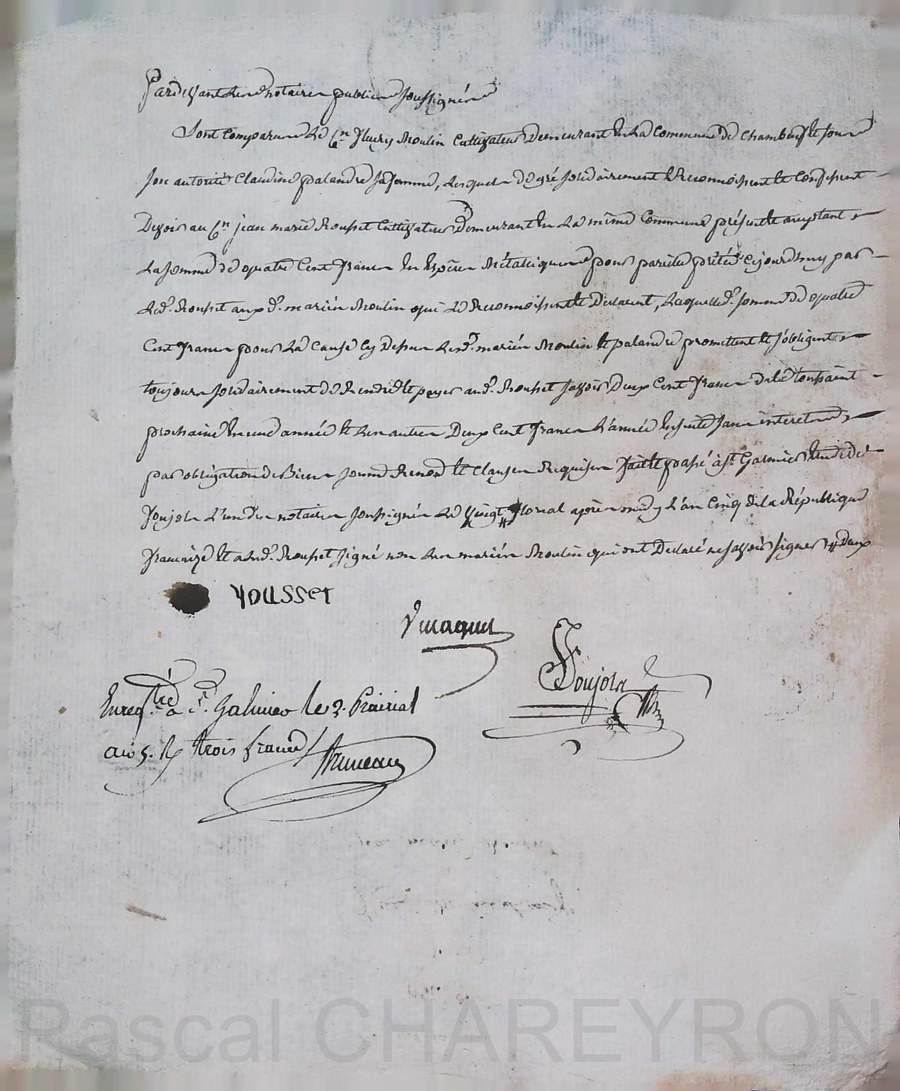 Pardevant les notaires publics soussignés
Sont Comparus Le C.en fleury Moulin Cultivateur Demeurant En La Commune de Chambeuf et sous
son autorité Claudine palandre sa femme, Lesquels de gré solidairement Reconnoissent et Confessent
Devoir au C.en jean marie Rousset Cultivateur Demeurant En La même Commune présent et acceptant
La somme de quatre Cent francs En Espèces Métalliques pour pareille prêtée cejourdhuy par
Led. Rousset auxd. mariés Moulin qui Le Reconnoissent et Déclarent, Laquelle d. somme de quatre
Cent francs pour La Cause Cy Dessus Lesd. mariés Moulin et palandre promettent et s'obligent
toujours solidairement de Rendre et payer aud. Rousset savoir Deux Cent francs de la toussaint
prochaine En une année et Les autres Deux Cent francs L'année Ensuite sans interets
par obligation de Biens soumis Renon. et Clauses Requises fait et passé à St. Garmier Etude de
Soujola L'un des notaires soussignés Le Vingt floréal après midy L'an Cinq de la République
francaize et a Led. Rousset signé non Les mariés Moulin qui ont Déclaré ne savoir signer # Deux
rousset
Soujola
Enreg.tré à St. Galmier le 2. Prairial
an 5. trois francs